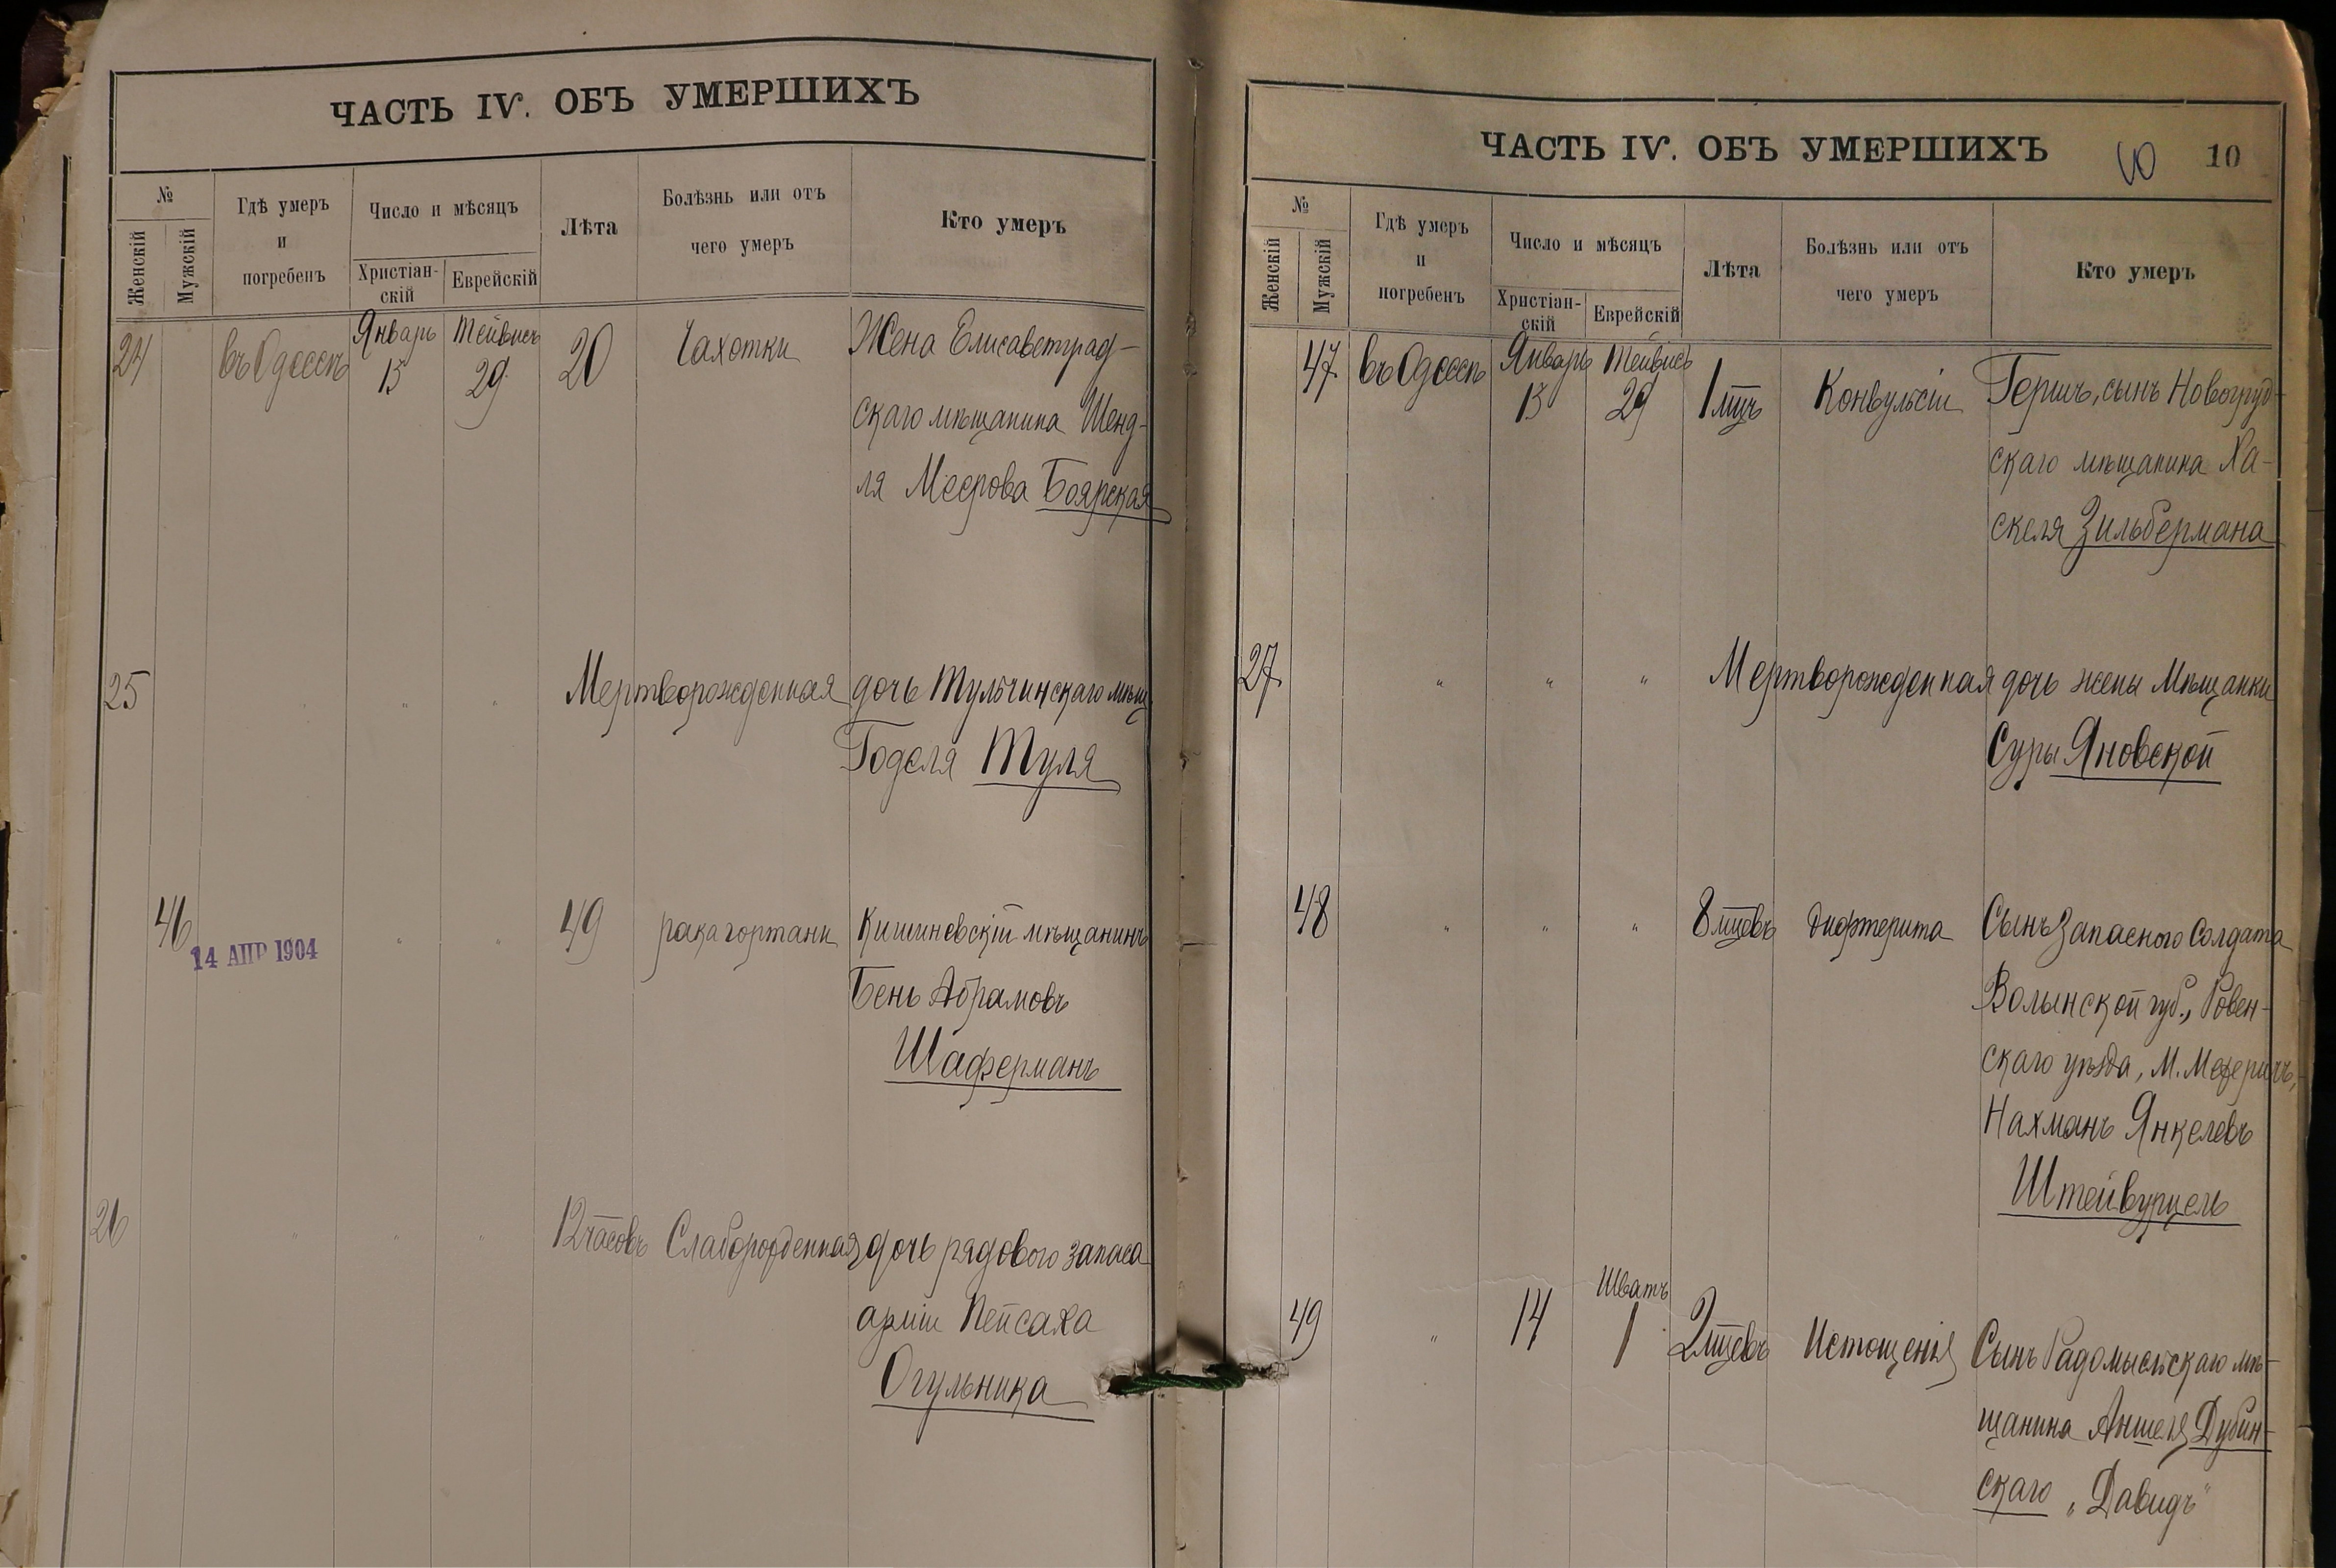 ЧАСТЬ IV. ОБЪ УМЕРШИХЪ
№
Женскій
Мужскій
Гдѣ умеръ
и
погребенъ
Число и мѣсяцъ
Христіан-
скій
Еврейскій
Лѣта
Болѣзнь или отъ
чего умеръ
Кто умеръ
24 въ Одессѣ Январь 13 Тейвисъ 29 20 Чахотки Жена Елисаветград-
скаго мѣщанина Шенд-
ля Меерова Боярская
25 " " Мертворожденная дочь Тульчинскаго мѣщ
Годеля Туля
46 " " 49 рака гортани Кишиневскій мѣщанинъ
14 АПР 1904
Бень Абрамовъ
Шаферманъ
26 " " " 12 часовъ Слаборожденная дочь рядового запаса
арміи Пейсаха
Огульника
ЧАСТЬ IV. ОБЪ УМЕРШИХЪ
10 10
№
Женскій
Мужскій
Гдѣ умеръ
и
погребенъ
Число и мѣсяцъ
Христіан-
скій
Еврейскій
Лѣта
Болѣзнь или отъ
чего умеръ
Кто умеръ
47 въ Одессѣ Январь 13 Тейвисъ 29 1 мцъ Конвульсіи Гершъ, сынъ Новогруд-
скаго мѣщанина Ха-
скеля Зильбермана
27 " " " Мертворожденная дочь жены Мѣщанки
Суры Яновской
48 " " " 8 мцевъ Дифтерита Сынъ Запасного Солдата
Волынской губ., Ровен-
скаго уѣзда, М. Межеричъ,
Нахманъ Янкелевъ
Штейвурцель
49 " 14 Шватъ 1 2 мцевъ Истощенія Сынъ Радомысльскаго мѣ-
щанина Аншеля Дубин-
скаго „Давидъ"